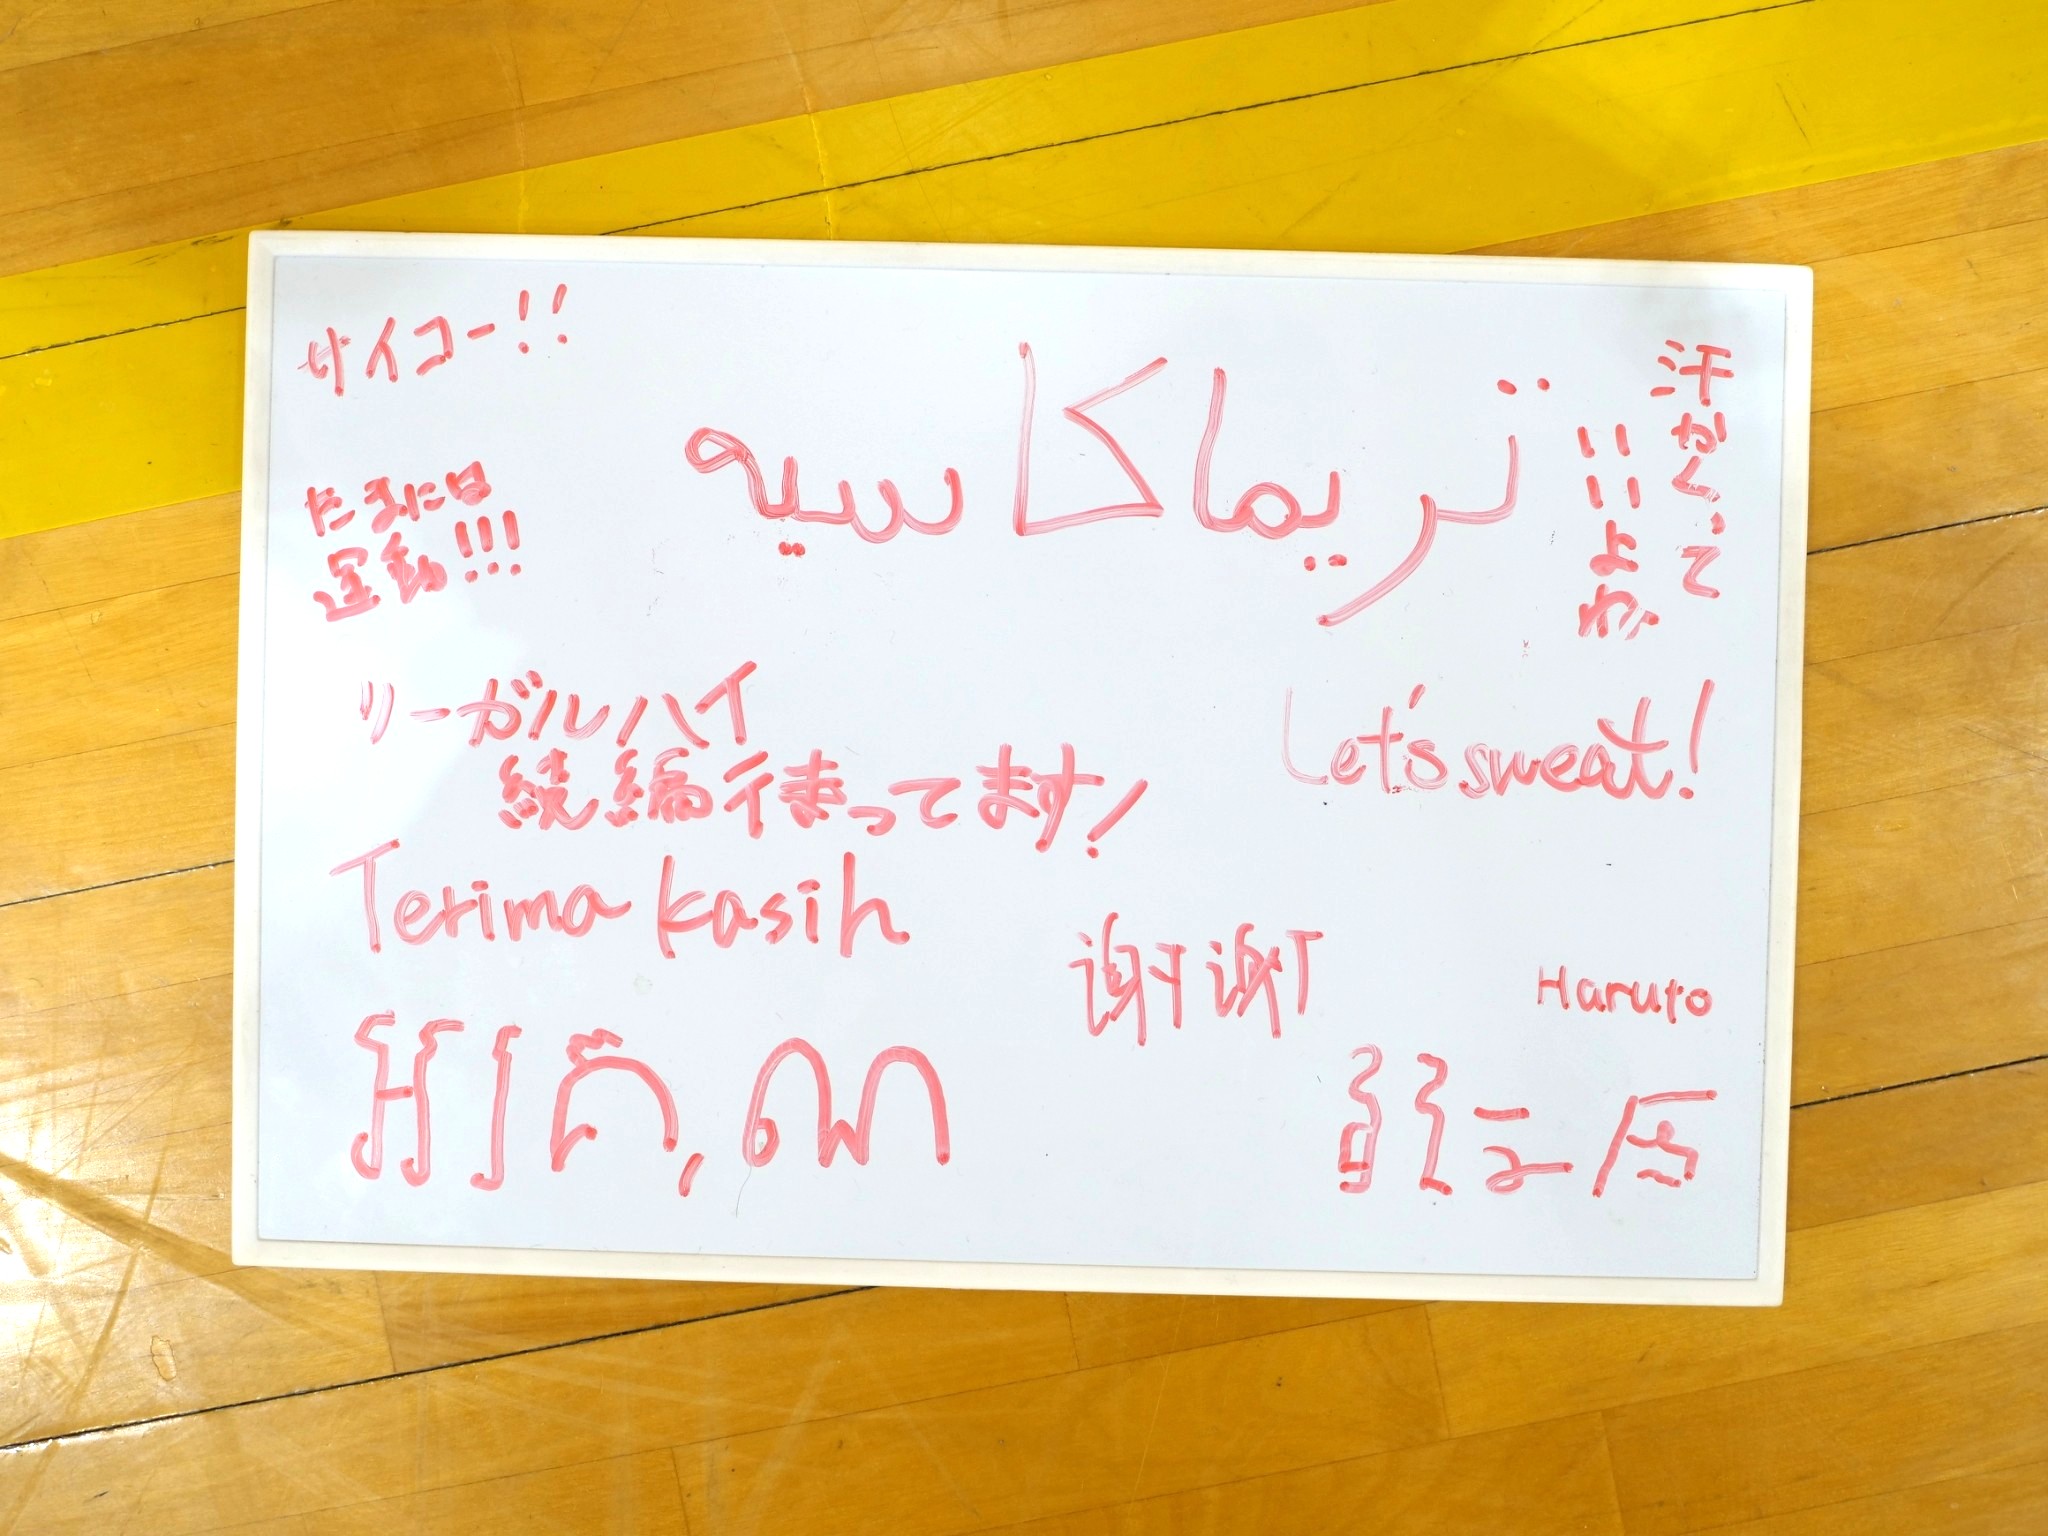 サイコー!!
تريماكاسيه
汗かくって
いいよね
たまには
運動!!!
リーガルハイ
続編待ってます!
Let's sweat!
Terima kasih
谢谢
Haruto